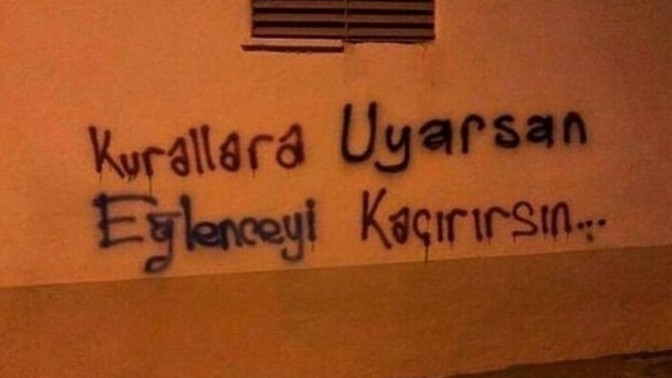 Kurallara Uyarsan
Eğlenceyi Kaçırırsın...